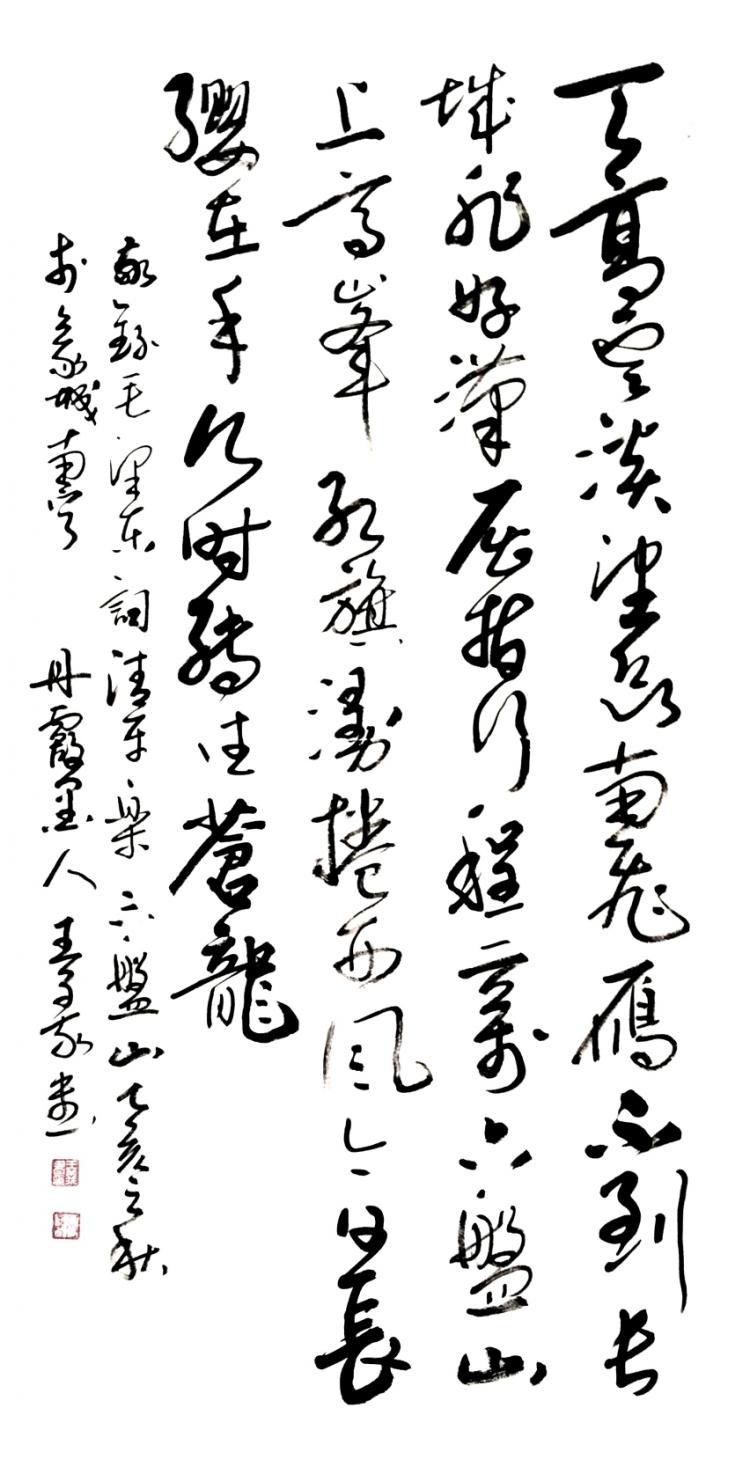 天高雲淡望斷南飛雁不到长
城非好漢屈指行程二萬六盤山
上高峰紅旗漫捲西風今日長
纓在手何时縛住蒼龍
敬錄毛澤東詞清平樂六盤山乙亥之秋
於城南丹霞墨人王書